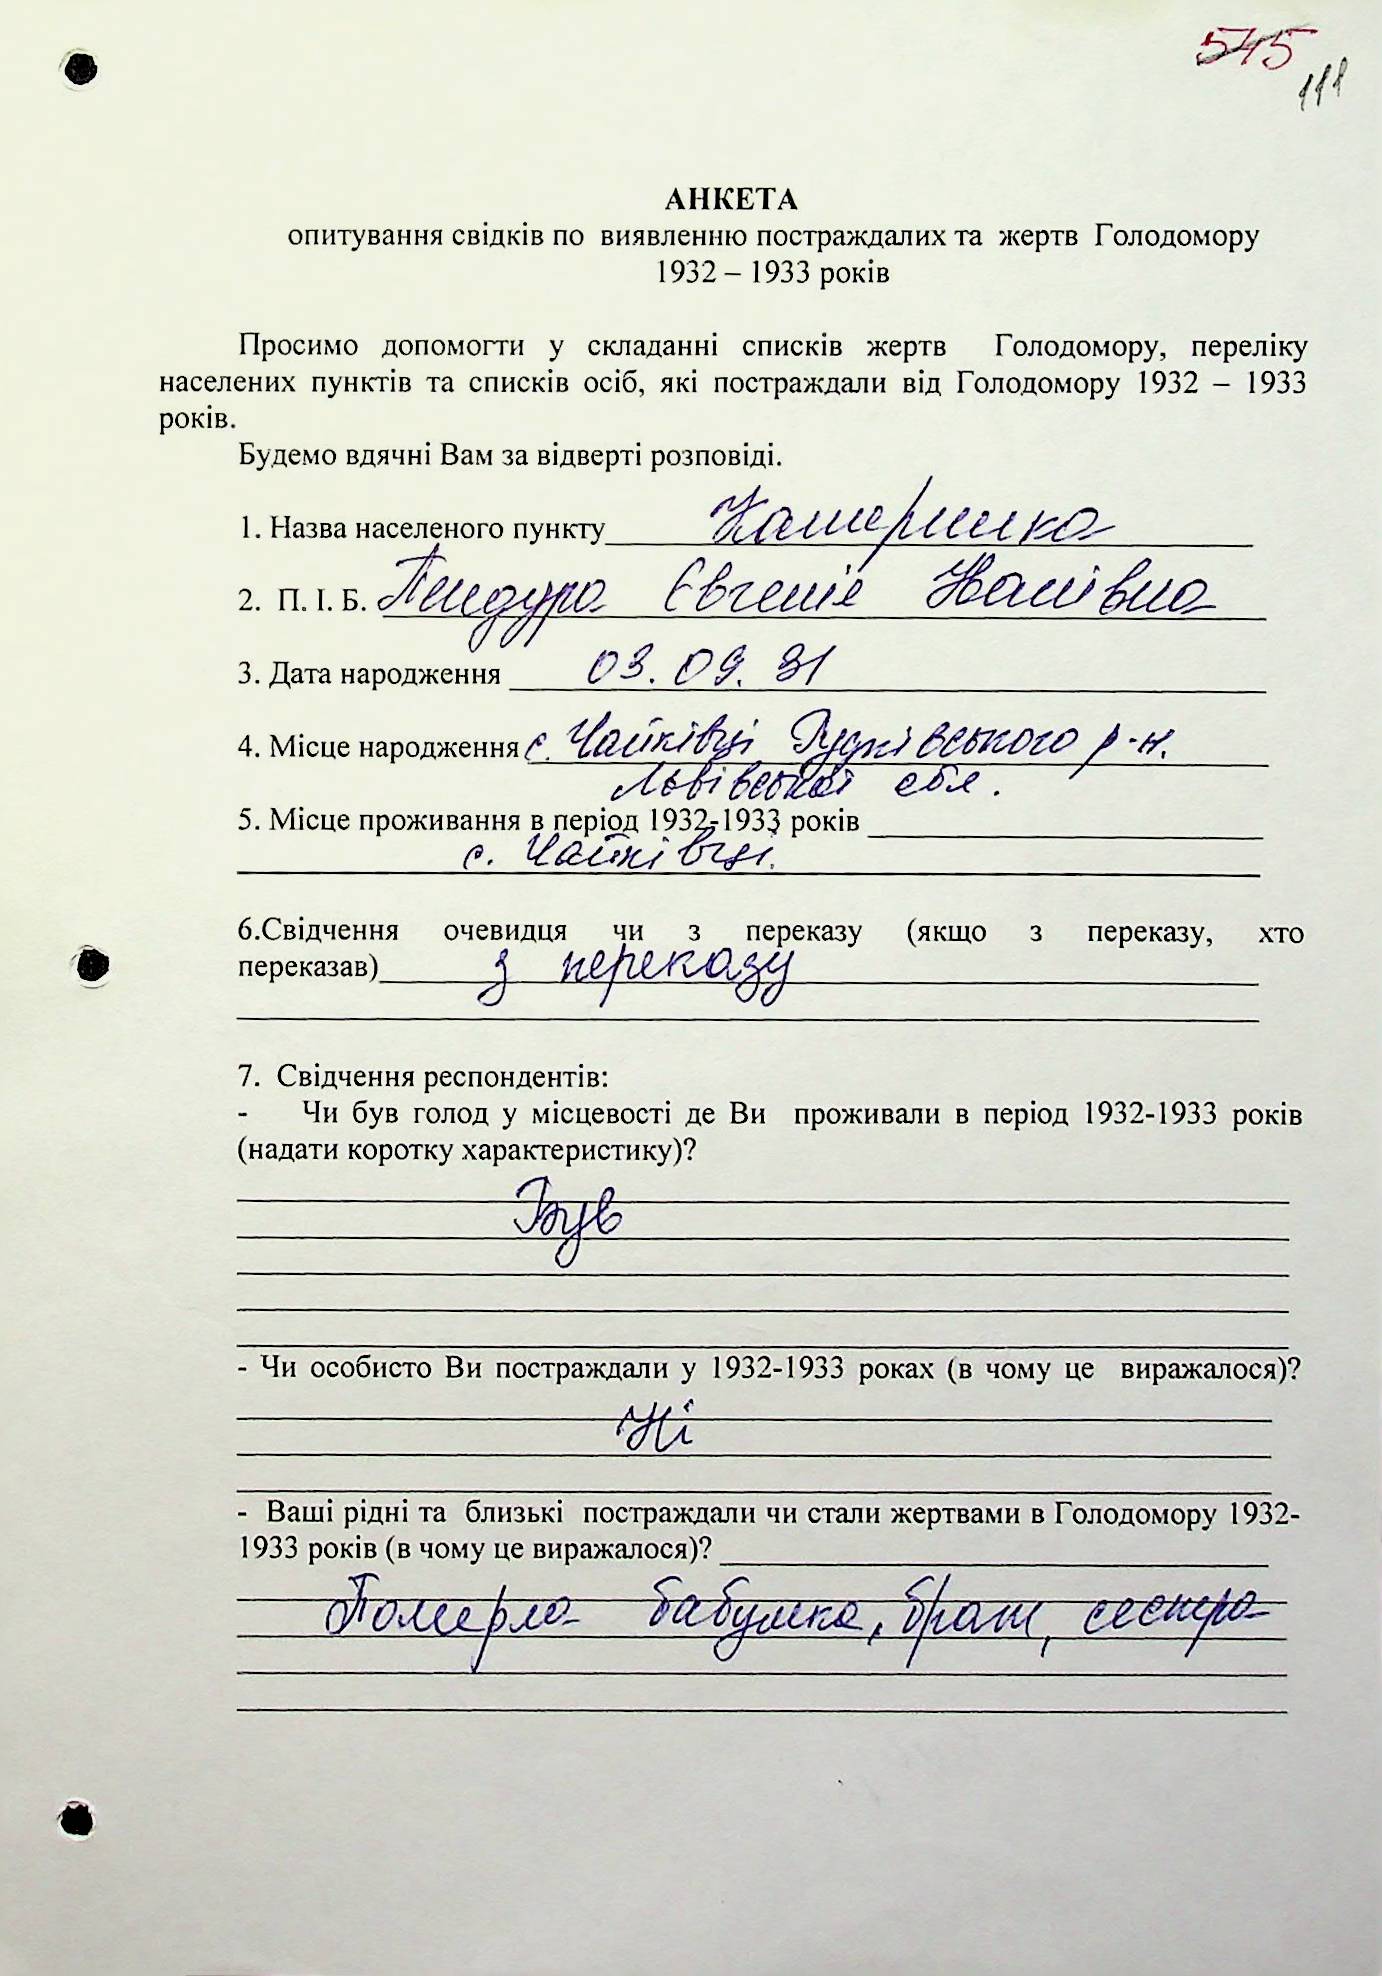 545
111
АНКЕТА
опитування свідків по виявленню постраждалих та жертв Голодомору
1932 – 1933 років
Просимо допомогти у складанні списків жертв Голодомору, переліку
населених пунктів та списків осіб, які постраждали від Голодомору 1932 – 1933
років.
Будемо вдячні Вам за відверті розповіді.
1. Назва населеного пункту Катеринка
2. П. І. Б. Євгенія Іванівна
3. Дата народження 03.09.31
4. Місце народження с. Чайківці Рудківського р-н.
Львівської обл.
5. Місце проживання в період 1932-1933 років
с. Чайківці.
6.Свідчення очевидця чи з переказу (якщо з переказу, хто
переказав) з переказу
7. Свідчення респондентів:
- Чи був голод у місцевості де Ви проживали в період 1932-1933 років
(надати коротку характеристику)?
Був
- Чи особисто Ви постраждали у 1932-1933 роках (в чому це виражалося)?
Ні
- Ваші рідні та близькі постраждали чи стали жертвами в Голодомору 1932-
1933 років (в чому це виражалося)?
Померла бабушка, брат, сестра